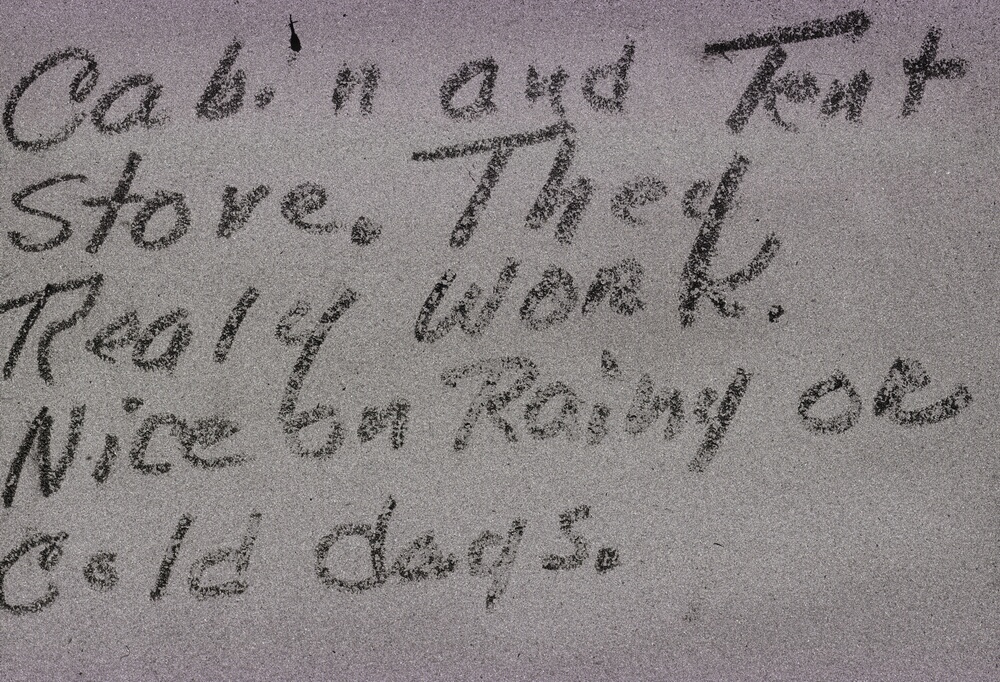 Cabin and Tent
Store. They
Realy work.
Nice on Rainy or
Cold days.